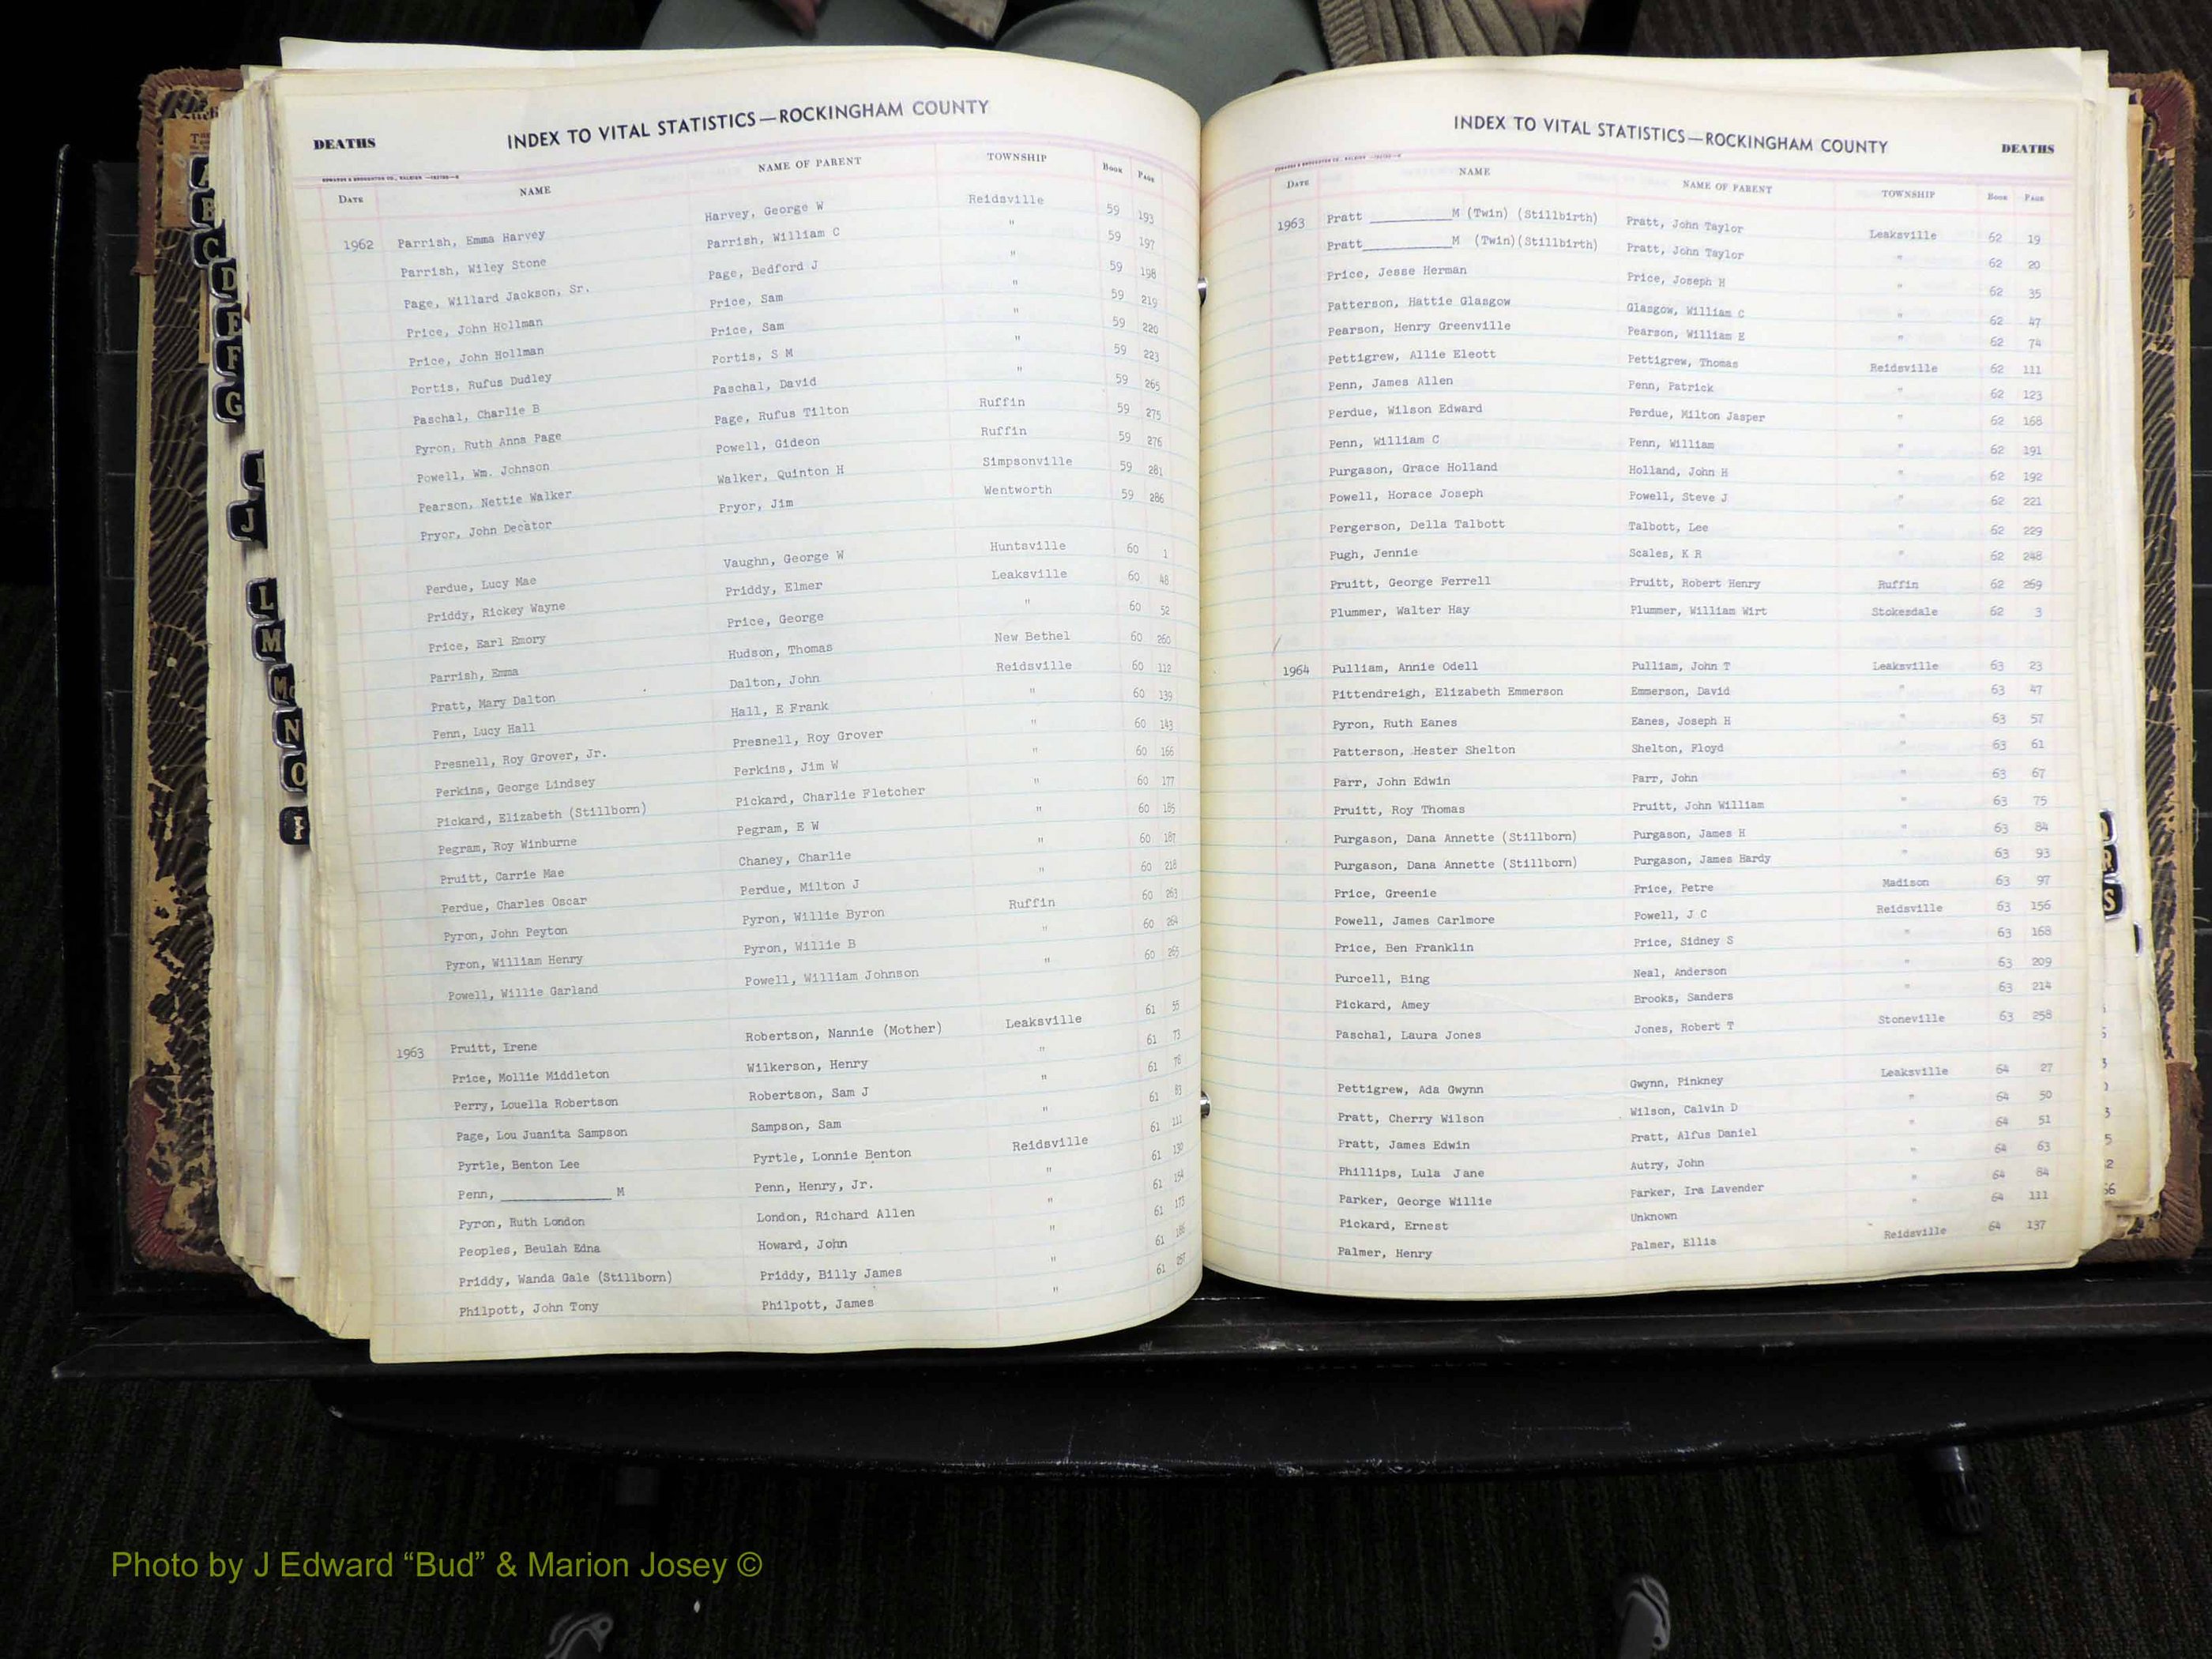 DEATHS
INDEX TO VITAL STATISTICS—ROCKINGHAM COUNTY
DATE NAME NAME OF PARENT TOWNSHIP BOOK PAGE
1962 Parrish, Emma Harvey Harvey, George W Reidsville 59 193
Parrish, Wiley Stone Parrish, William C " 59 197
Page, Willard Jackson, Sr. Page, Bedford J " 59 198
Price, John Hollman Price, Sam " 59 219
Price, John Hollman Price, Sam " 59 220
Portis, Rufus Dudley Portis, S M " 59 223
Paschal, Charlie B Paschal, David " 59 265
Pyron, Ruth Anna Page Page, Rufus Tilton Ruffin 59 275
Powell, Wm. Johnson Powell, Gideon Ruffin 59 276
Pearson, Nettie Walker Walker, Quinton H Simpsonville 59 281
Pryor, John Decator Pryor, Jim Wentworth 59 286
Perdue, Lucy Mae Vaughn, George W Huntsville 60 1
Priddy, Rickey Wayne Priddy, Elmer Leaksville 60 48
Price, Earl Emory Price, George " 60 52
Parrish, Emma Hudson, Thomas New Bethel 60 260
Pratt, Mary Dalton Dalton, John Reidsville 60 112
Penn, Lucy Hall Hall, E Frank " 60 139
Presnell, Roy Grover, Jr. Presnell, Roy Grover " 60 143
Perkins, George Lindsey Perkins, Jim W " 60 166
Pickard, Elizabeth (Stillborn) Pickard, Charlie Fletcher " 60 177
Pegram, Roy Winburne Pegram, E W " 60 185
Pruitt, Carrie Mae Chaney, Charlie " 60 187
Perdue, Charles Oscar Perdue, Milton J " 60 218
Pyron, John Peyton Pyron, Willie Byron Ruffin 60 263
Pyron, William Henry Pyron, Willie B " 60 264
Powell, Willie Garland Powell, William Johnson " 60 265
1963 Pruitt, Irene Robertson, Nannie (Mother) Leaksville 61 55
Price, Mollie Middleton Wilkerson, Henry " 61 73
Perry, Louella Robertson Robertson, Sam J " 61 78
Page, Lou Juanita Sampson Sampson, Sam " 61 83
Pyrtle, Benton Lee Pyrtle, Lonnie Benton Reidsville 61 111
Penn, ______________ M Penn, Henry, Jr. " 61 130
Pyron, Ruth London London, Richard Allen " 61 154
Peoples, Beulah Edna Howard, John " 61 173
Priddy, Wanda Gale (Stillborn) Priddy, Billy James " 61
Philpott, John Tony Philpott, James " 61
INDEX TO VITAL STATISTICS—ROCKINGHAM COUNTY
DEATHS
DATE NAME NAME OF PARENT TOWNSHIP BOOK PAGE
1963 Pratt ___________M (Twin) (Stillbirth) Pratt, John Taylor Leaksville 62 19
Pratt____________M (Twin)(Stillbirth) Pratt, John Taylor " 62 20
Price, Jesse Herman Price, Joseph H " 62 35
Patterson, Hattie Glasgow Glasgow, William C " 62 47
Pearson, Henry Greenville Pearson, William E " 62 74
Pettigrew, Allie Eleott Pettigrew, Thomas Reidsville 62 111
Penn, James Allen Penn, Patrick " 62 123
Perdue, Wilson Edward Perdue, Milton Jasper " 62 168
Penn, William C Penn, William " 62 191
Purgason, Grace Holland Holland, John H " 62 192
Powell, Horace Joseph Powell, Steve J " 62 221
Pergerson, Della Talbott Talbott, Lee " 62 229
Pugh, Jennie Scales, K R " 62 248
Pruitt, George Ferrell Pruitt, Robert Henry Ruffin 62 269
Plummer, Walter Hay Plummer, William Wirt Stokesdale 62 3
1964 Pulliam, Annie Odell Pulliam, John T Leaksville 63 23
Pittendreigh, Elizabeth Emmerson Emmerson, David " 63 47
Pyron, Ruth Eanes Eanes, Joseph H " 63 57
Patterson, Hester Shelton Shelton, Floyd " 63 61
Parr, John Edwin Parr, John " 63 67
Pruitt, Roy Thomas Pruitt, John William " 63 75
Purgason, Dana Annette (Stillborn) Purgason, James H " 63 84
Purgason, Dana Annette (Stillborn) Purgason, James Hardy " 63 93
Price, Greenie Price, Petre Madison 63 97
Powell, James Carlmore Powell, J C Reidsville 63 156
Price, Ben Franklin Price, Sidney S " 63 168
Purcell, Bing Neal, Anderson " 63 209
Pickard, Amey Brooks, Sanders " 63 214
Paschal, Laura Jones Jones, Robert T Stoneville 63 258
Pettigrew, Ada Gwynn Gwynn, Pinkney Leaksville 64 27
Pratt, Cherry Wilson Wilson, Calvin D " 64 50
Pratt, James Edwin Pratt, Alfus Daniel " 64 51
Phillips, Lula Jane Autry, John " 64 63
Parker, George Willie Parker, Ira Lavender " 64 84
Pickard, Ernest Unknown " 64 111
Palmer, Henry Palmer, Ellis Reidsville 64 137
A
B
C
D
E
F
G
I
J
L
M
Mc
N
O
P
R
S
Photo by J Edward “Bud” & Marion Josey ©